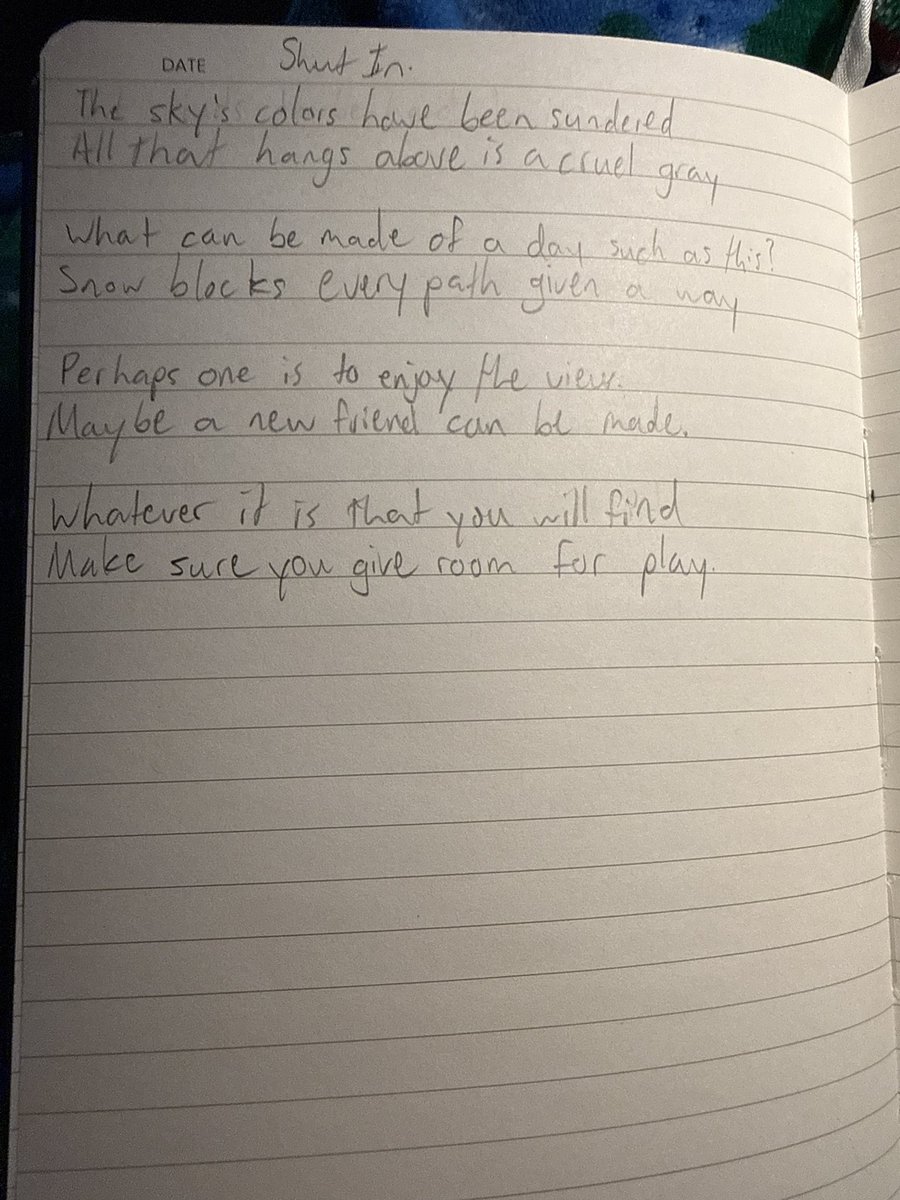 DATE Shut In.
The sky's colors have been sundered
All that hangs above is a cruel gray
What can be made of a day such as this?
Snow blocks every path given a way
Perhaps one is to enjoy the view.
Maybe a new friend can be made.
Whatever it is that you will find
Make sure you give room for play.